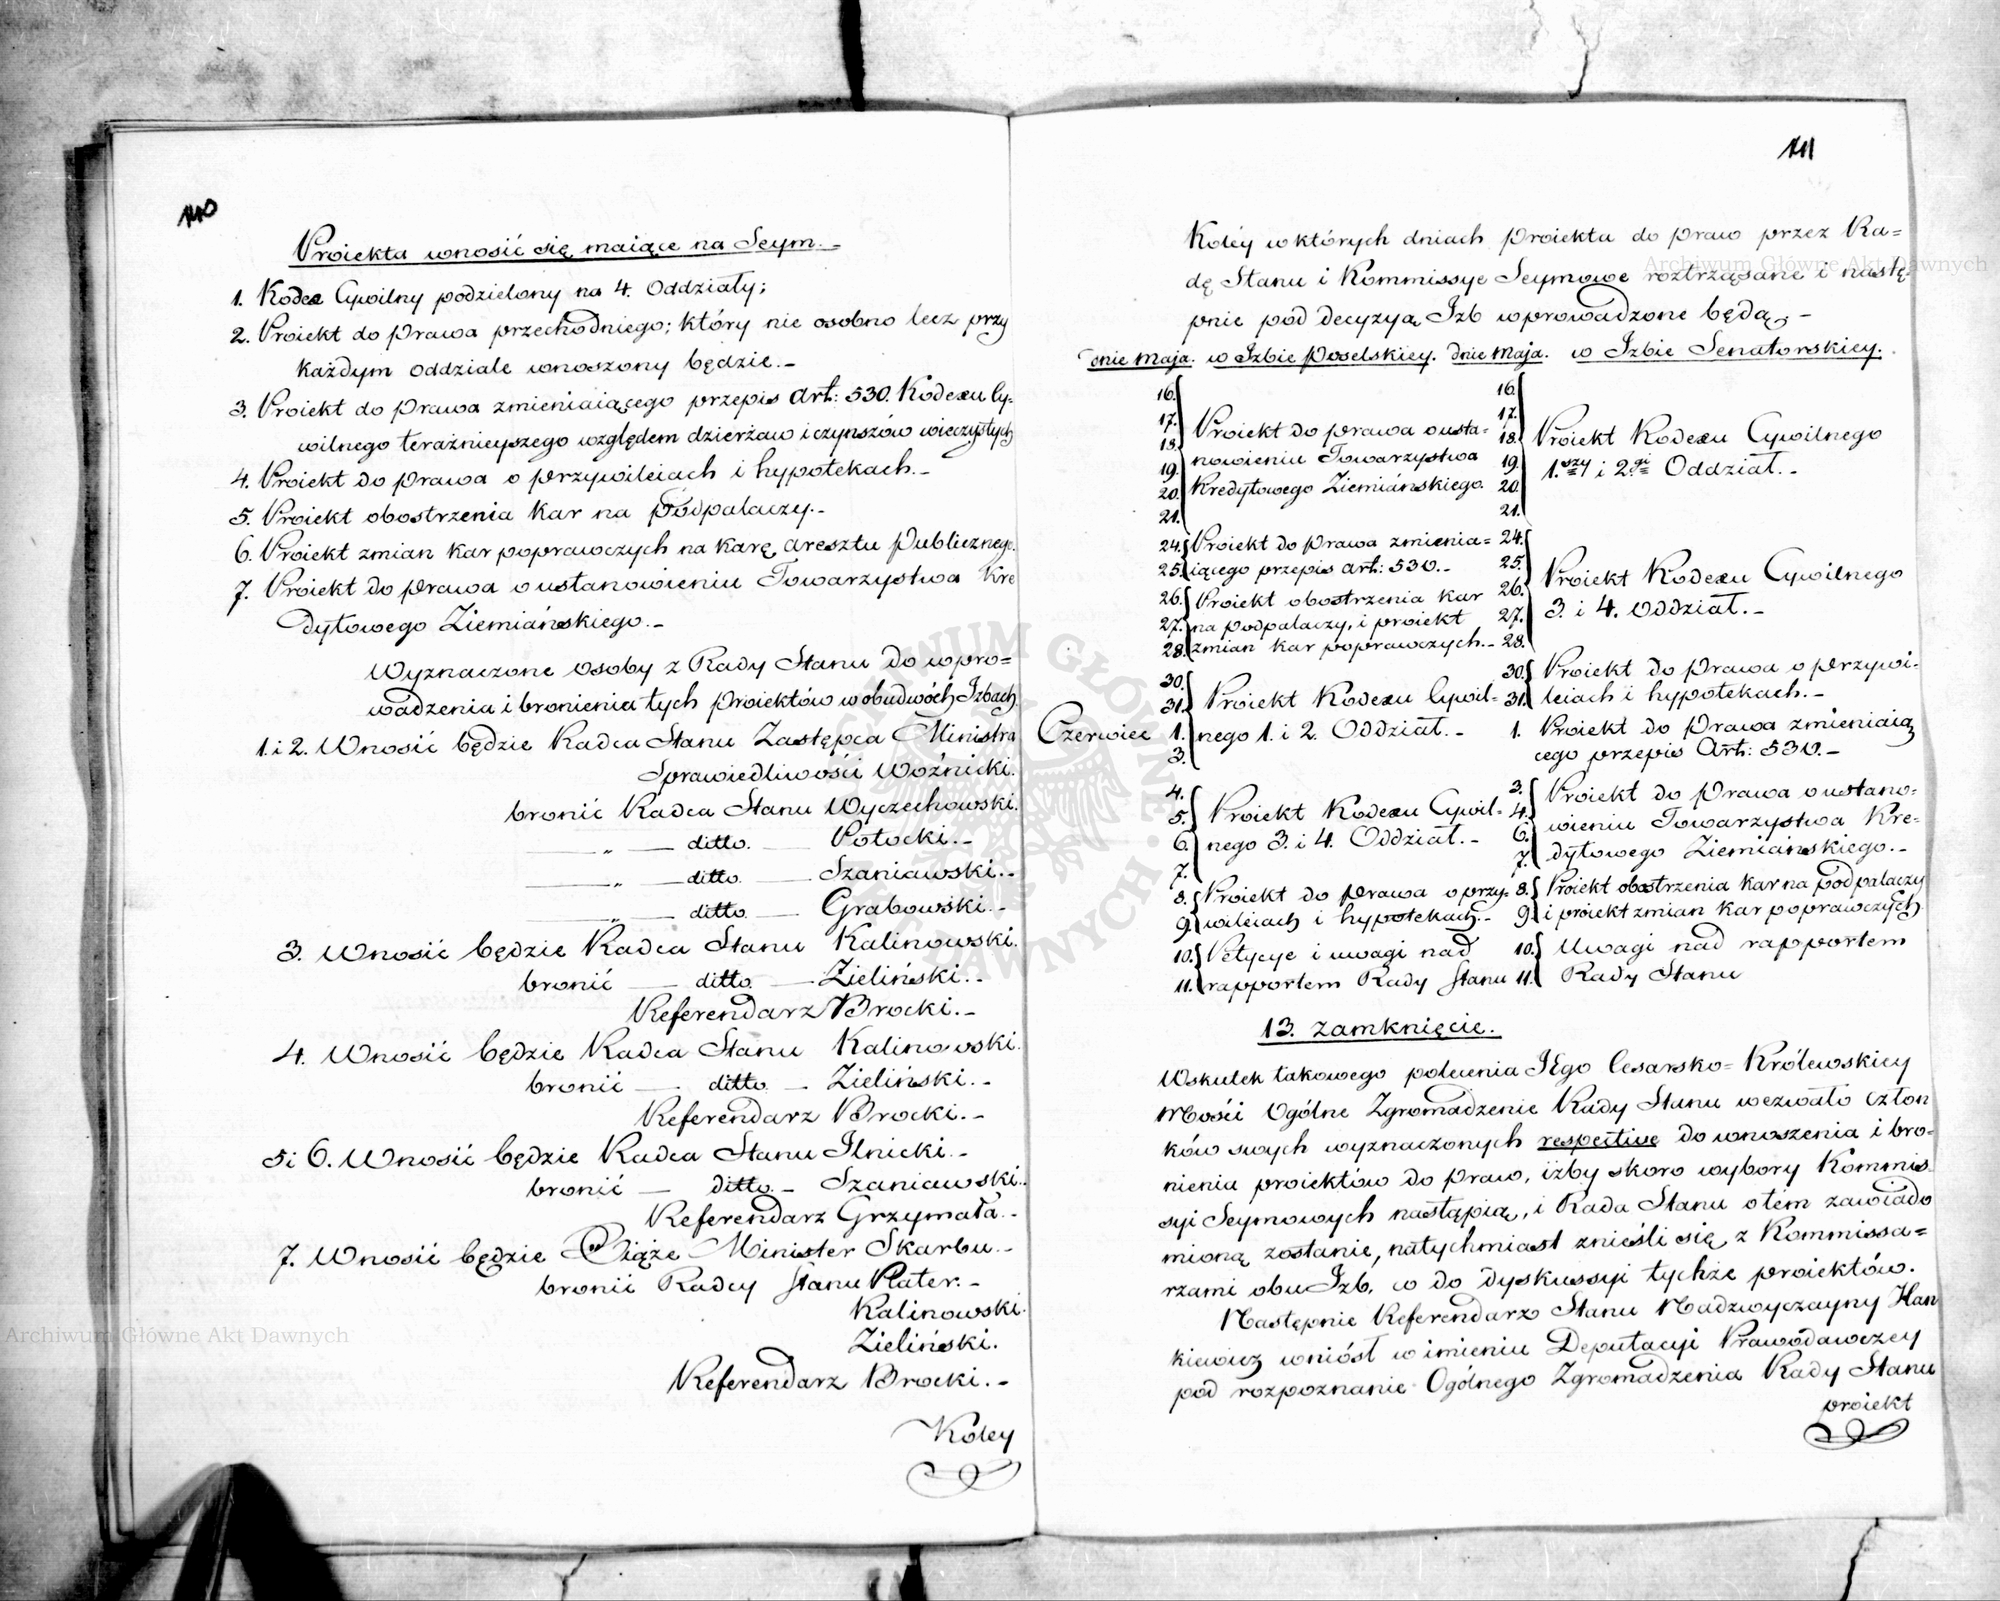 140
Proiekta wnosić się maiące na Seym. –
1. Kodex Cywilny podzielony na 4. Oddziały;
2. Proiekt do prawa przechodniego; który nie osobno lecz przy
każdym oddziale wnoszony będzie. –
3. Proiekt do prawa zmieniaiącego przepis Art: 530. Kodexu Cy=
wilnego teraźnieyszego względem dzierżaw i czynszów wieczystych
4. Proiekt do prawa o przywileiach i hypotekach. –
5. Proiekt obostrzenia kar na Podpalaczy. –
6. Proiekt zmian kar poprawczych na karę aresztu publicznego.
7. Proiekt do prawa o ustanowieniu Towarzystwa Kre
dytowego Ziemiańskiego. –
Wyznaczone osoby z Rady Stanu do wpro=
wadzenia i bronienia tych proiektów w obudwóch Izbach.
1. i 2. Wnosić będzie Radca Stanu Zastępca Ministra
Sprawiedliwości Woźnicki.
bronić Radca Stanu Wyczechowski.
— „ — ditto. — Potocki. –
— „ — ditto. — Szaniawski. –
— „ — ditto. — Grabowski. –
3. Wnosić będzie Radca Stanu Kalinowski.
bronić — ditto. — Zieliński. –
Referendarz Brocki. –
4. Wnosić będzie Radca Stanu Kalinowski.
bronić — ditto. — Zieliński. –
Referendarz Brocki. –
5 i 6. Wnosić będzie Radca Stanu Ilnicki. –
bronić — ditto. – Szaniawski.
Referendarz Grzymała. –
7. Wnosić będzie Xiąże Minister Skarbu. –
bronić Radcy Stanu Plater. –
Kalinowski.
Zieliński.
Referendarz Brocki. –
Koley
141
Koléy w których dniach proiekta do praw przez Ra=
dę Stanu i Kommissye Seymowe roztrząsane i nastę=
pnie pod decyzyą Izb wprowadzone będą. –
dnie Maja. w Izbie Poselskiey. dnie Maja. w Izbie Senatorskiey.
16.
17.
18.
19.
20.
21.
Proiekt do prawa o usta=
nowieniu Towarzystwa
Kredytowego Ziemiańskiego.
16.
17.
18.
19.
20.
21.
Proiekt Kodexu Cywilnego
1.szy i 2.gi Oddział. –
24.
25.
Proiekt do prawa zmienia=
iącego przepis art: 530. –
26.
27.
28.
Proiekt obostrzenia kar
na podpalaczy, i proiekt
zmian kar poprawczych. –
24.
25.
26.
27.
28.
Proiekt Kodexu Cywilnego
3. i 4. Oddział. –
30.
31.
Czerwiec 1.
3.
Proiekt Kodexu Cywil=
nego 1. i 2. Oddział. –
30.
31.
Proiekt do prawa o przywi=
leiach i hypotekach. –
1. Proiekt do prawa zmieniaią
cego przepis Art: 530. –
4.
5.
6.
7.
Proiekt Kodexu Cywil=
nego 3. i 4. Oddział. –
3.
4.
6.
7.
Proiekt do prawa o ustano=
wieniu Towarzystwa Kre=
dytowego Ziemiańskiego. –
8.
9.
Proiekt do prawa o przy=
wileiach i hypotekach. –
8.
9.
Proiekt obostrzenia kar na podpalaczy
i proiekt zmian kar poprawczych.
10.
11.
Petycye i uwagi nad
rapportem Rady Stanu
10.
11.
Uwagi nad rapportem
Rady Stanu
13. zamknięcie.
Wskutek takowego polecenia JEgo Cesarsko=Królewskiey
Mości Ogólne Zgromadzenie Rady Stanu wezwało człon
ków swych wyznaczonych respective do wnoszenia i bro=
nienia proiektów do praw, iżby skoro wybory Kommis
syi Seymowych nastąpią, i Rada Stanu o tém zawiado
mioną zostanie, natychmiast znieśli się z Kommissa=
rzami obu Izb, w do dyskussyi tychże proiektów.
Następnie Referendarz Stanu Nadzwyczayny Han
kiewicz wniósł w imieniu Deputacyi Prawodawczey
pod rozpoznanie Ogólnego Zgromadzenia Rady Stanu
proiekt
Archiwum Główne Akt Dawnych
Archiwum Główne Akt Dawnych
ARCHIWUM GŁÓWNE AKT DAWNYCH